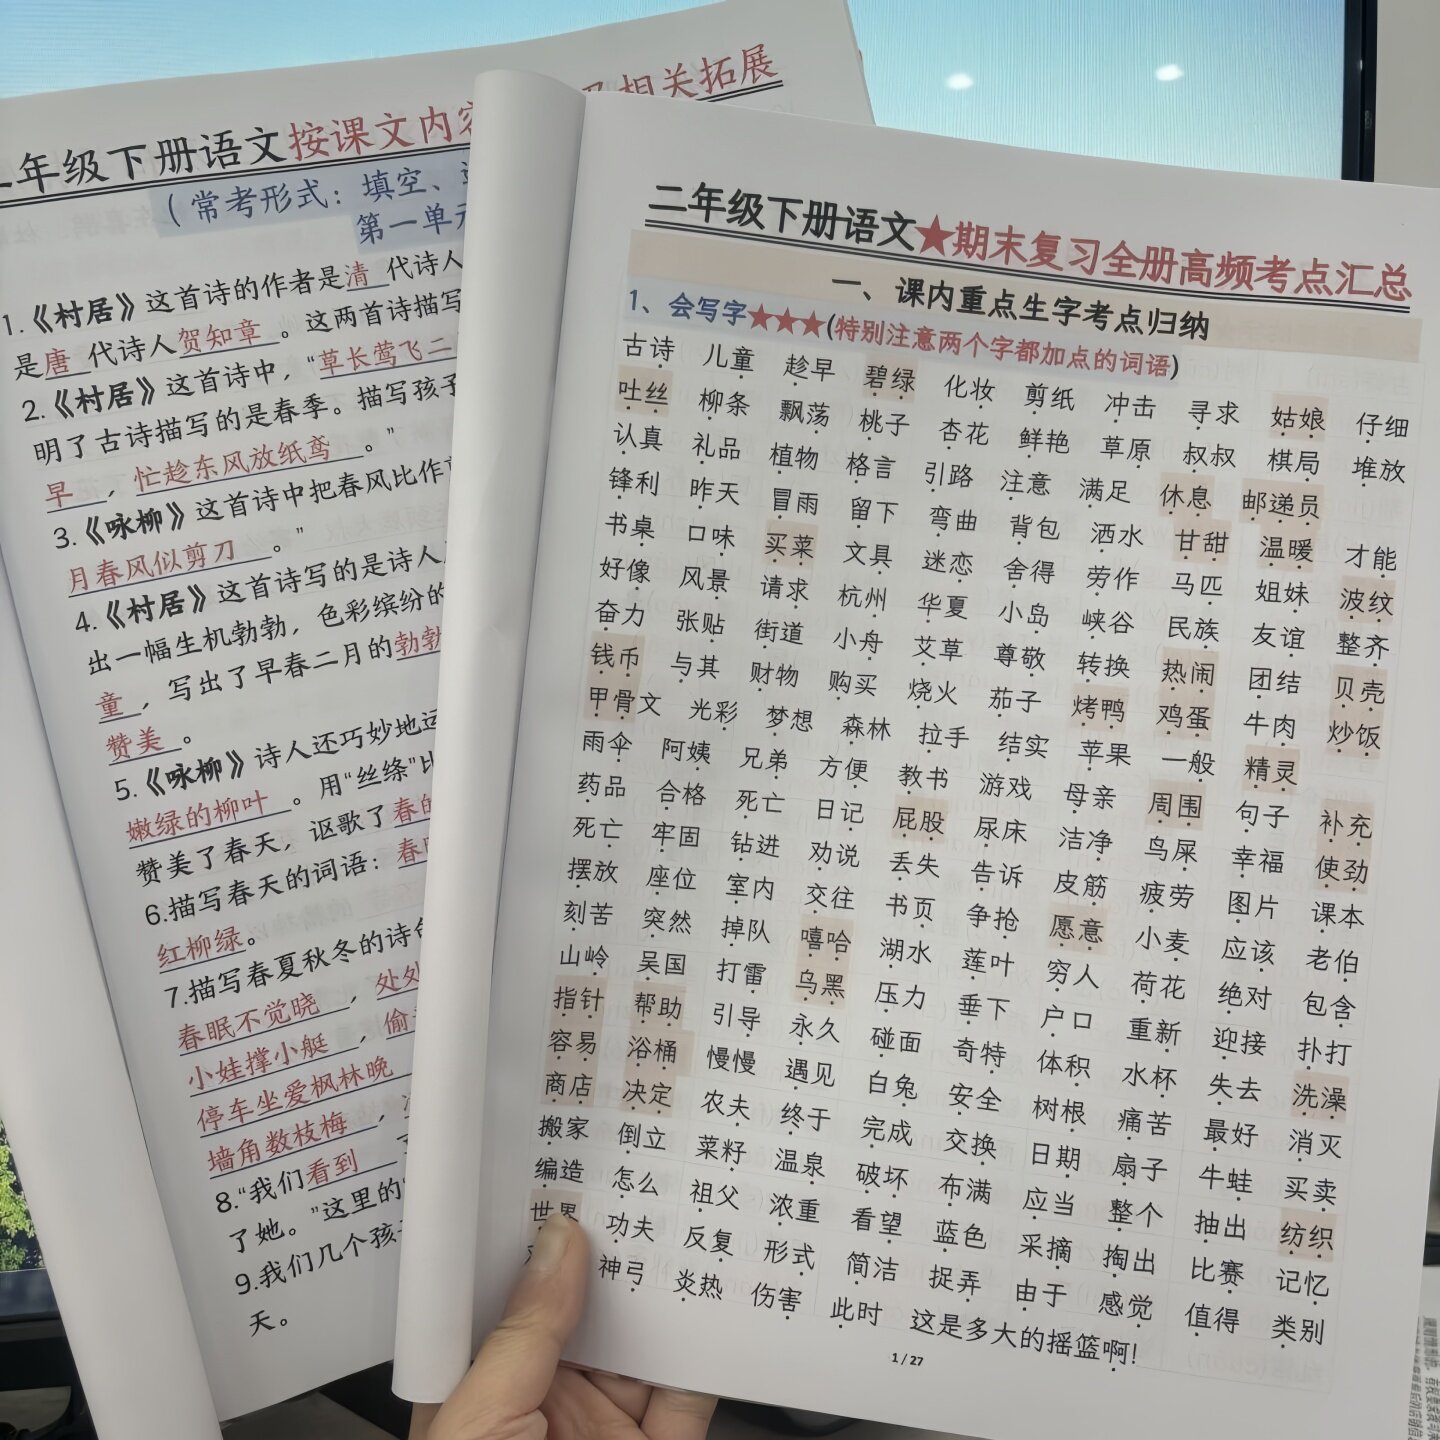 二年级下册语文按课文内容
及相关拓展
（常考形式：填空、
第一单元
1.《村居》这首诗的作者是清 代诗人
是唐 代诗人贺知章 。这两首诗描写
2.《村居》这首诗中，“草长莺飞二
明了古诗描写的是春季。描写孩子
早 ，忙趁东风放纸鸢 。”
3.《咏柳》这首诗中把春风比作
月春风似剪刀 。”
4.《村居》这首诗写的是诗人
出一幅生机勃勃，色彩缤纷的
童 ，写出了早春二月的勃勃
赞美 。
5.《咏柳》诗人还巧妙地运
嫩绿的柳叶 。用“丝绦”比
赞美了春天，讴歌了春的
6.描写春天的词语：春
红柳绿。
7.描写春夏秋冬的诗句
春眠不觉晓 ，处处
小娃撑小艇 ，偷
停车坐爱枫林晚
墙角数枝梅 ，
8.“我们看到
了她。”这里的“
9.我们几个孩子
天。
二年级下册语文★期末复习全册高频考点汇总
一、课内重点生字考点归纳
1、会写字★★★(特别注意两个字都加点的词语)
古诗 儿童 趁早 碧绿 化妆 剪纸 冲击 寻求 姑娘 仔细
吐丝 柳条 飘荡 桃子 杏花 鲜艳 草原 叔叔 棋局 堆放
认真 礼品 植物 格言 引路 注意 满足 休息 邮递员
锋利 昨天 冒雨 留下 弯曲 背包 洒水 甘甜 温暖 才能
书桌 口味 买菜 文具 迷恋 舍得 劳作 马匹 姐妹 波纹
好像 风景 请求 杭州 华夏 小岛 峡谷 民族 友谊 整齐
奋力 张贴 街道 小舟 艾草 尊敬 转换 热闹 团结 贝壳
钱币 与其 财物 购买 烧火 茄子 烤鸭 鸡蛋 牛肉 炒饭
甲骨文 光彩 梦想 森林 拉手 结实 苹果 一般 精灵
雨伞 阿姨 兄弟 方便 教书 游戏 母亲 周围 句子 补充
药品 合格 死亡 日记 屁股 尿床 洁净 鸟屎 幸福 使劲
死亡 牢固 钻进 劝说 丢失 告诉 皮筋 疲劳 图片 课本
摆放 座位 室内 交往 书页 争抢 愿意 小麦 应该 老伯
刻苦 突然 掉队 嘻哈 湖水 莲叶 穷人 荷花 绝对 包含
山岭 吴国 打雷 乌黑 压力 垂下 户口 重新 迎接 扑打
指针 帮助 引导 永久 碰面 奇特 体积 水杯 失去 洗澡
容易 浴桶 慢慢 遇见 白兔 安全 树根 痛苦 最好 消灭
商店 决定 农夫 终于 完成 交换 日期 扇子 牛蛙 买卖
搬家 倒立 菜籽 温泉 破坏 布满 应当 整个 抽出 纺织
编造 怎么 祖父 浓重 看望 蓝色 采摘 掏出 比赛 记忆
世界 功夫 反复 形式 简洁 捉弄 由于 感觉 值得 类别
神弓 炎热 伤害 此时 这是多大的摇篮啊!
1 / 27